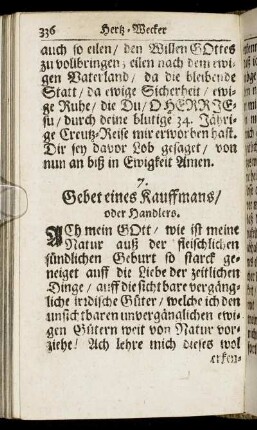 336 Hertz-Wecker
auch so eilen/ den Willen GOttes
zu vollbringen; eilen nach dem ewi-
gen Vaterland/ da die bleibende
Statt/ da ewige Sicherheit/ ewi-
ge Ruhe/ die Du/ O HERR JE-
su/ durch deine blutige 34. Jähri-
ge Creutz-Reise mir erworben hast.
Dir sey davor Lob gesaget/ von
nun an biß in Ewigkeit Amen.
7.
Gebet eines Kauffmans/
oder Handlers.
ACh mein GOtt/ wie ist meine
Natur auß der fleischlichen
sündlichen Geburt so starck ge-
neiget auff die Liebe der zeitlichen
Dinge/ auff die sichtbare vergäng-
liche irdische Güter/ welche ich den
unsichtbaren unvergänglichen ewi-
gen Gütern weit von Natur vor-
ziehe! Ach lehre mich dieses wol
erken-